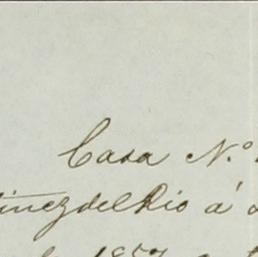 Casa N.º
tinez del Rio á
1857